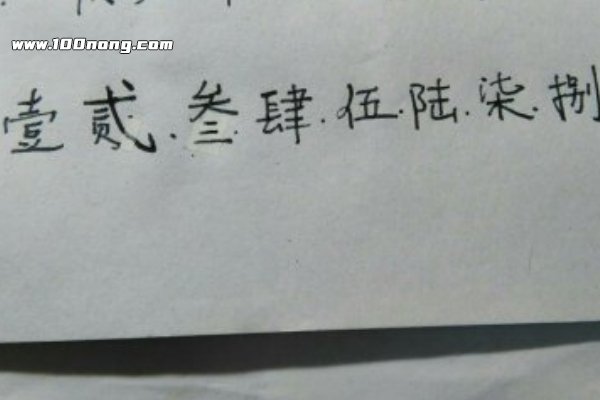 www.100nong.com
壹贰.叁.肆.伍.陆.柒.捌